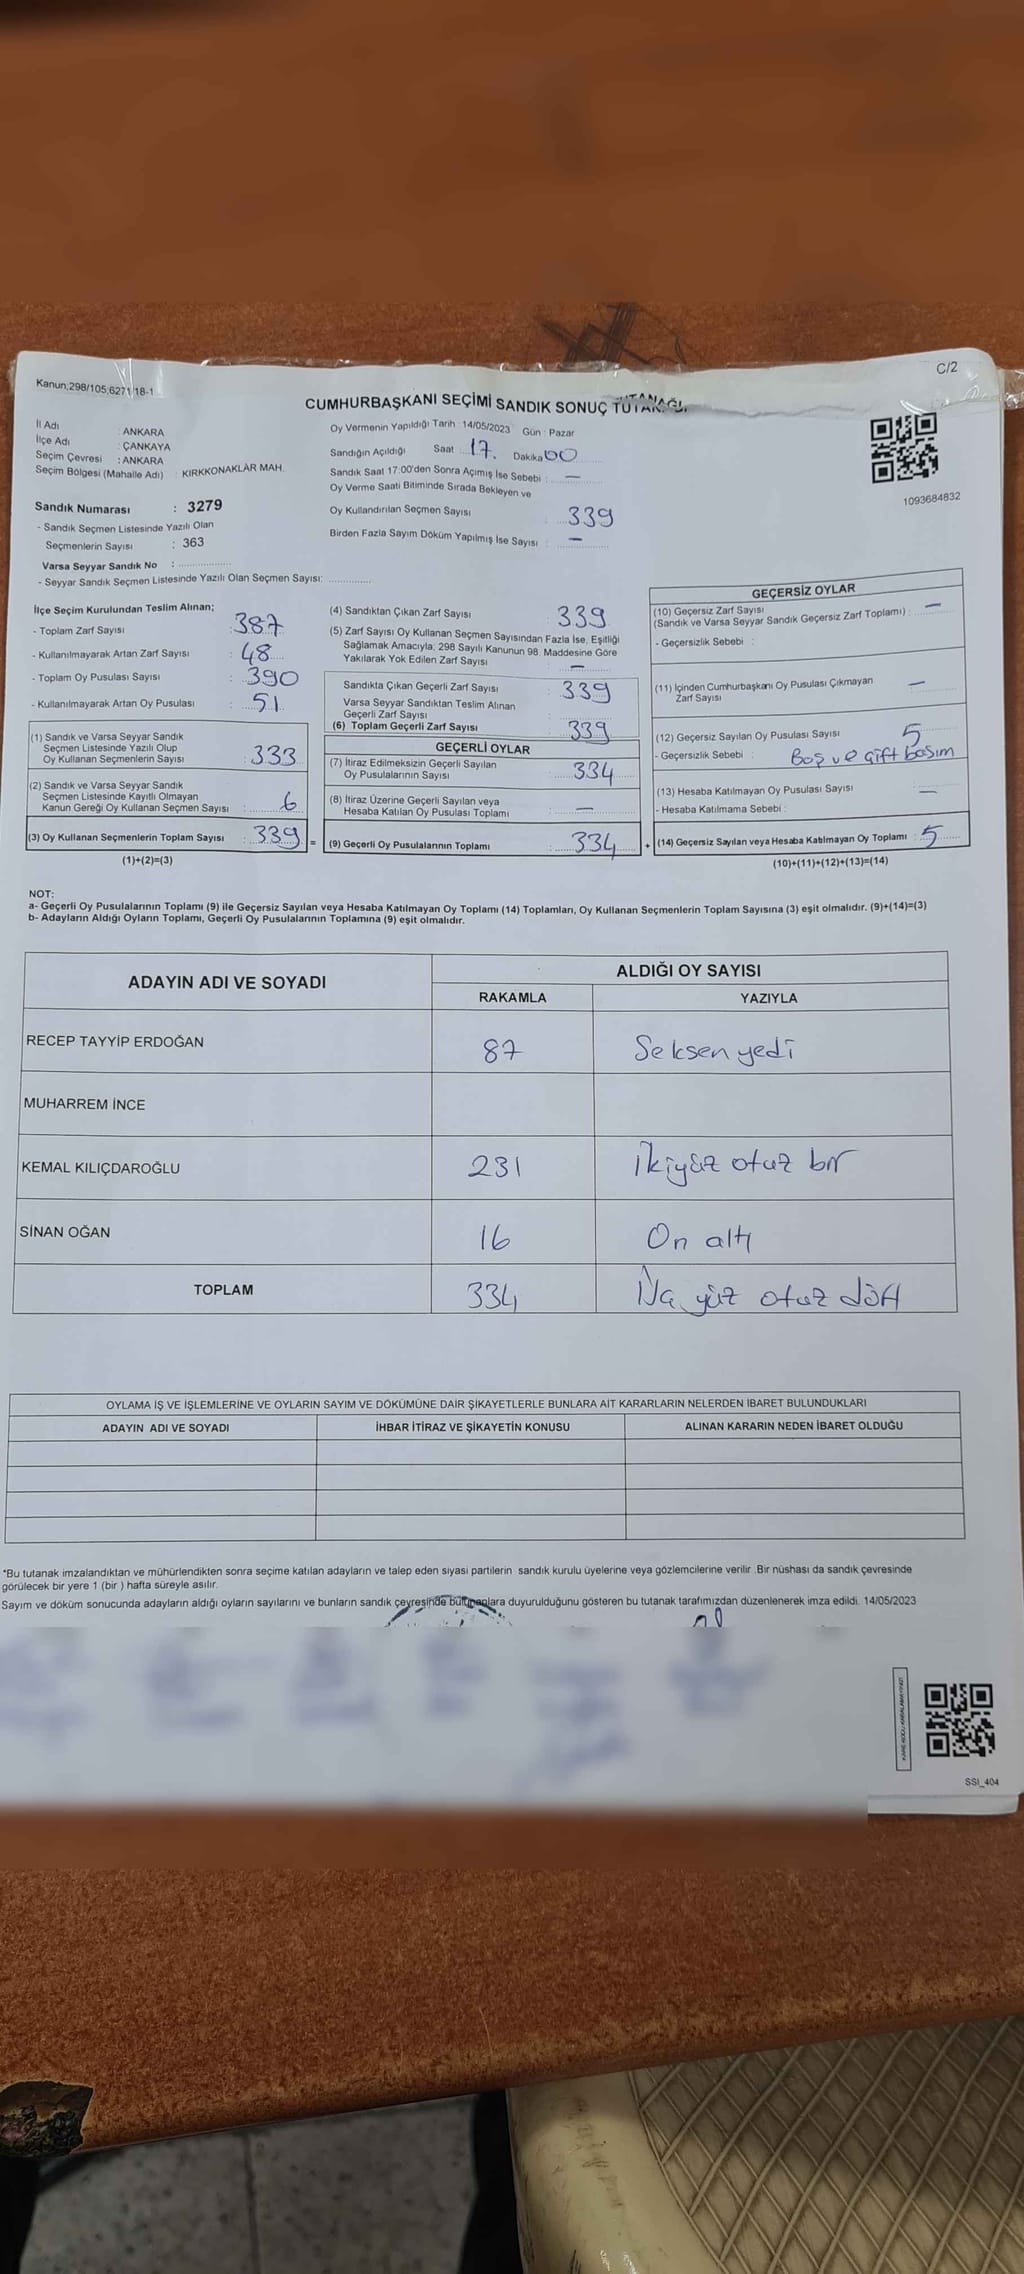 C/2
Kanun;298/105;6271/18-1
CUMHURBAŞKANI SEÇİMİ SANDIK SONUÇ TUTANAĞI
İl Adı : ANKARA
İlçe Adı : ÇANKAYA
Seçim Çevresi : ANKARA
Seçim Bölgesi (Mahalle Adı) : KIRKKONAKLAR MAH.
Sandık Numarası : 3279
- Sandık Seçmen Listesinde Yazılı Olan
Seçmenlerin Sayısı : 363
Varsa Seyyar Sandık No :
- Seyyar Sandık Seçmen Listesinde Yazılı Olan Seçmen Sayısı:
Oy Vermenin Yapıldığı Tarih : 14/05/2023 Gün : Pazar
Sandığın Açıldığı Saat 17. Dakika 00
Sandık Saat 17:00'den Sonra Açımış İse Sebebi : —
Oy Verme Saati Bitiminde Sırada Bekleyen ve
Oy Kullandırılan Seçmen Sayısı : 339
Birden Fazla Sayım Döküm Yapılmış İse Sayısı : —
1093684832
İlçe Seçim Kurulundan Teslim Alınan;
- Toplam Zarf Sayısı : 387
- Kullanılmayarak Artan Zarf Sayısı : 48
- Toplam Oy Pusulası Sayısı : 390
- Kullanılmayarak Artan Oy Pusulası : 51
(1) Sandık ve Varsa Seyyar Sandık
Seçmen Listesinde Yazılı Olup
Oy Kullanan Seçmenlerin Sayısı : 333
(2) Sandık ve Varsa Seyyar Sandık
Seçmen Listesinde Kayıtlı Olmayan
Kanun Gereği Oy Kullanan Seçmen Sayısı : 6
(3) Oy Kullanan Seçmenlerin Toplam Sayısı : 339 =
(1)+(2)=(3)
(4) Sandıktan Çıkan Zarf Sayısı : 339
(5) Zarf Sayısı Oy Kullanan Seçmen Sayısından Fazla İse, Eşitliği
Sağlamak Amacıyla, 298 Sayılı Kanunun 98. Maddesine Göre
Yakılarak Yok Edilen Zarf Sayısı : —
Sandıkta Çıkan Geçerli Zarf Sayısı : 339
Varsa Seyyar Sandıktan Teslim Alınan
Geçerli Zarf Sayısı :
(6) Toplam Geçerli Zarf Sayısı : 339
GEÇERLİ OYLAR
(7) İtiraz Edilmeksizin Geçerli Sayılan
Oy Pusulalarının Sayısı : 334
(8) İtiraz Üzerine Geçerli Sayılan veya
Hesaba Katılan Oy Pusulası Toplamı : —
(9) Geçerli Oy Pusulalarının Toplamı : 334 +
GEÇERSİZ OYLAR
(10) Geçersiz Zarf Sayısı
(Sandık ve Varsa Seyyar Sandık Geçersiz Zarf Toplamı) : —
- Geçersizlik Sebebi :
(11) İçinden Cumhurbaşkanı Oy Pusulası Çıkmayan
Zarf Sayısı : —
(12) Geçersiz Sayılan Oy Pusulası Sayısı : 5
- Geçersizlik Sebebi : Boş ve Çift basım
(13) Hesaba Katılmayan Oy Pusulası Sayısı : —
- Hesaba Katılmama Sebebi :
(14) Geçersiz Sayılan veya Hesaba Katılmayan Oy Toplamı : 5
(10)+(11)+(12)+(13)=(14)
NOT:
a- Geçerli Oy Pusulalarının Toplamı (9) ile Geçersiz Sayılan veya Hesaba Katılmayan Oy Toplamı (14) Toplamları, Oy Kullanan Seçmenlerin Toplam Sayısına (3) eşit olmalıdır. (9)+(14)=(3)
b- Adayların Aldığı Oyların Toplamı, Geçerli Oy Pusulalarının Toplamına (9) eşit olmalıdır.
ADAYIN ADI VE SOYADI
ALDIĞI OY SAYISI
RAKAMLA YAZIYLA
RECEP TAYYİP ERDOĞAN 87 Seksen yedi
MUHARREM İNCE
KEMAL KILIÇDAROĞLU 231 İkiyüz otuz bir
SİNAN OĞAN 16 On altı
TOPLAM 334 yüz otuz dört
OYLAMA İŞ VE İŞLEMLERİNE VE OYLARIN SAYIM VE DÖKÜMÜNE DAİR ŞİKAYETLERLE BUNLARA AİT KARARLARIN NELERDEN İBARET BULUNDUKLARI
ADAYIN ADI VE SOYADI İHBAR İTİRAZ VE ŞİKAYETİN KONUSU ALINAN KARARIN NEDEN İBARET OLDUĞU
*Bu tutanak imzalandıktan ve mühürlendikten sonra seçime katılan adayların ve talep eden siyasi partilerin sandık kurulu üyelerine veya gözlemcilerine verilir .Bir nüshası da sandık çevresinde
görülecek bir yere 1 (bir ) hafta süreyle asılır.
Sayım ve döküm sonucunda adayların aldığı oyların sayılarını ve bunların sandık çevresinde bulunanlara duyurulduğunu gösteren bu tutanak tarafımızdan düzenlenerek imza edildi. 14/05/2023
SSI_404